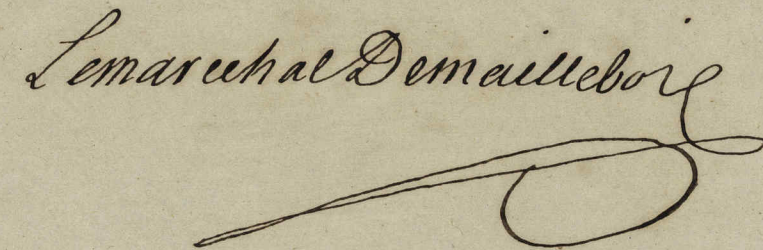 Lemarechal Demaillebois